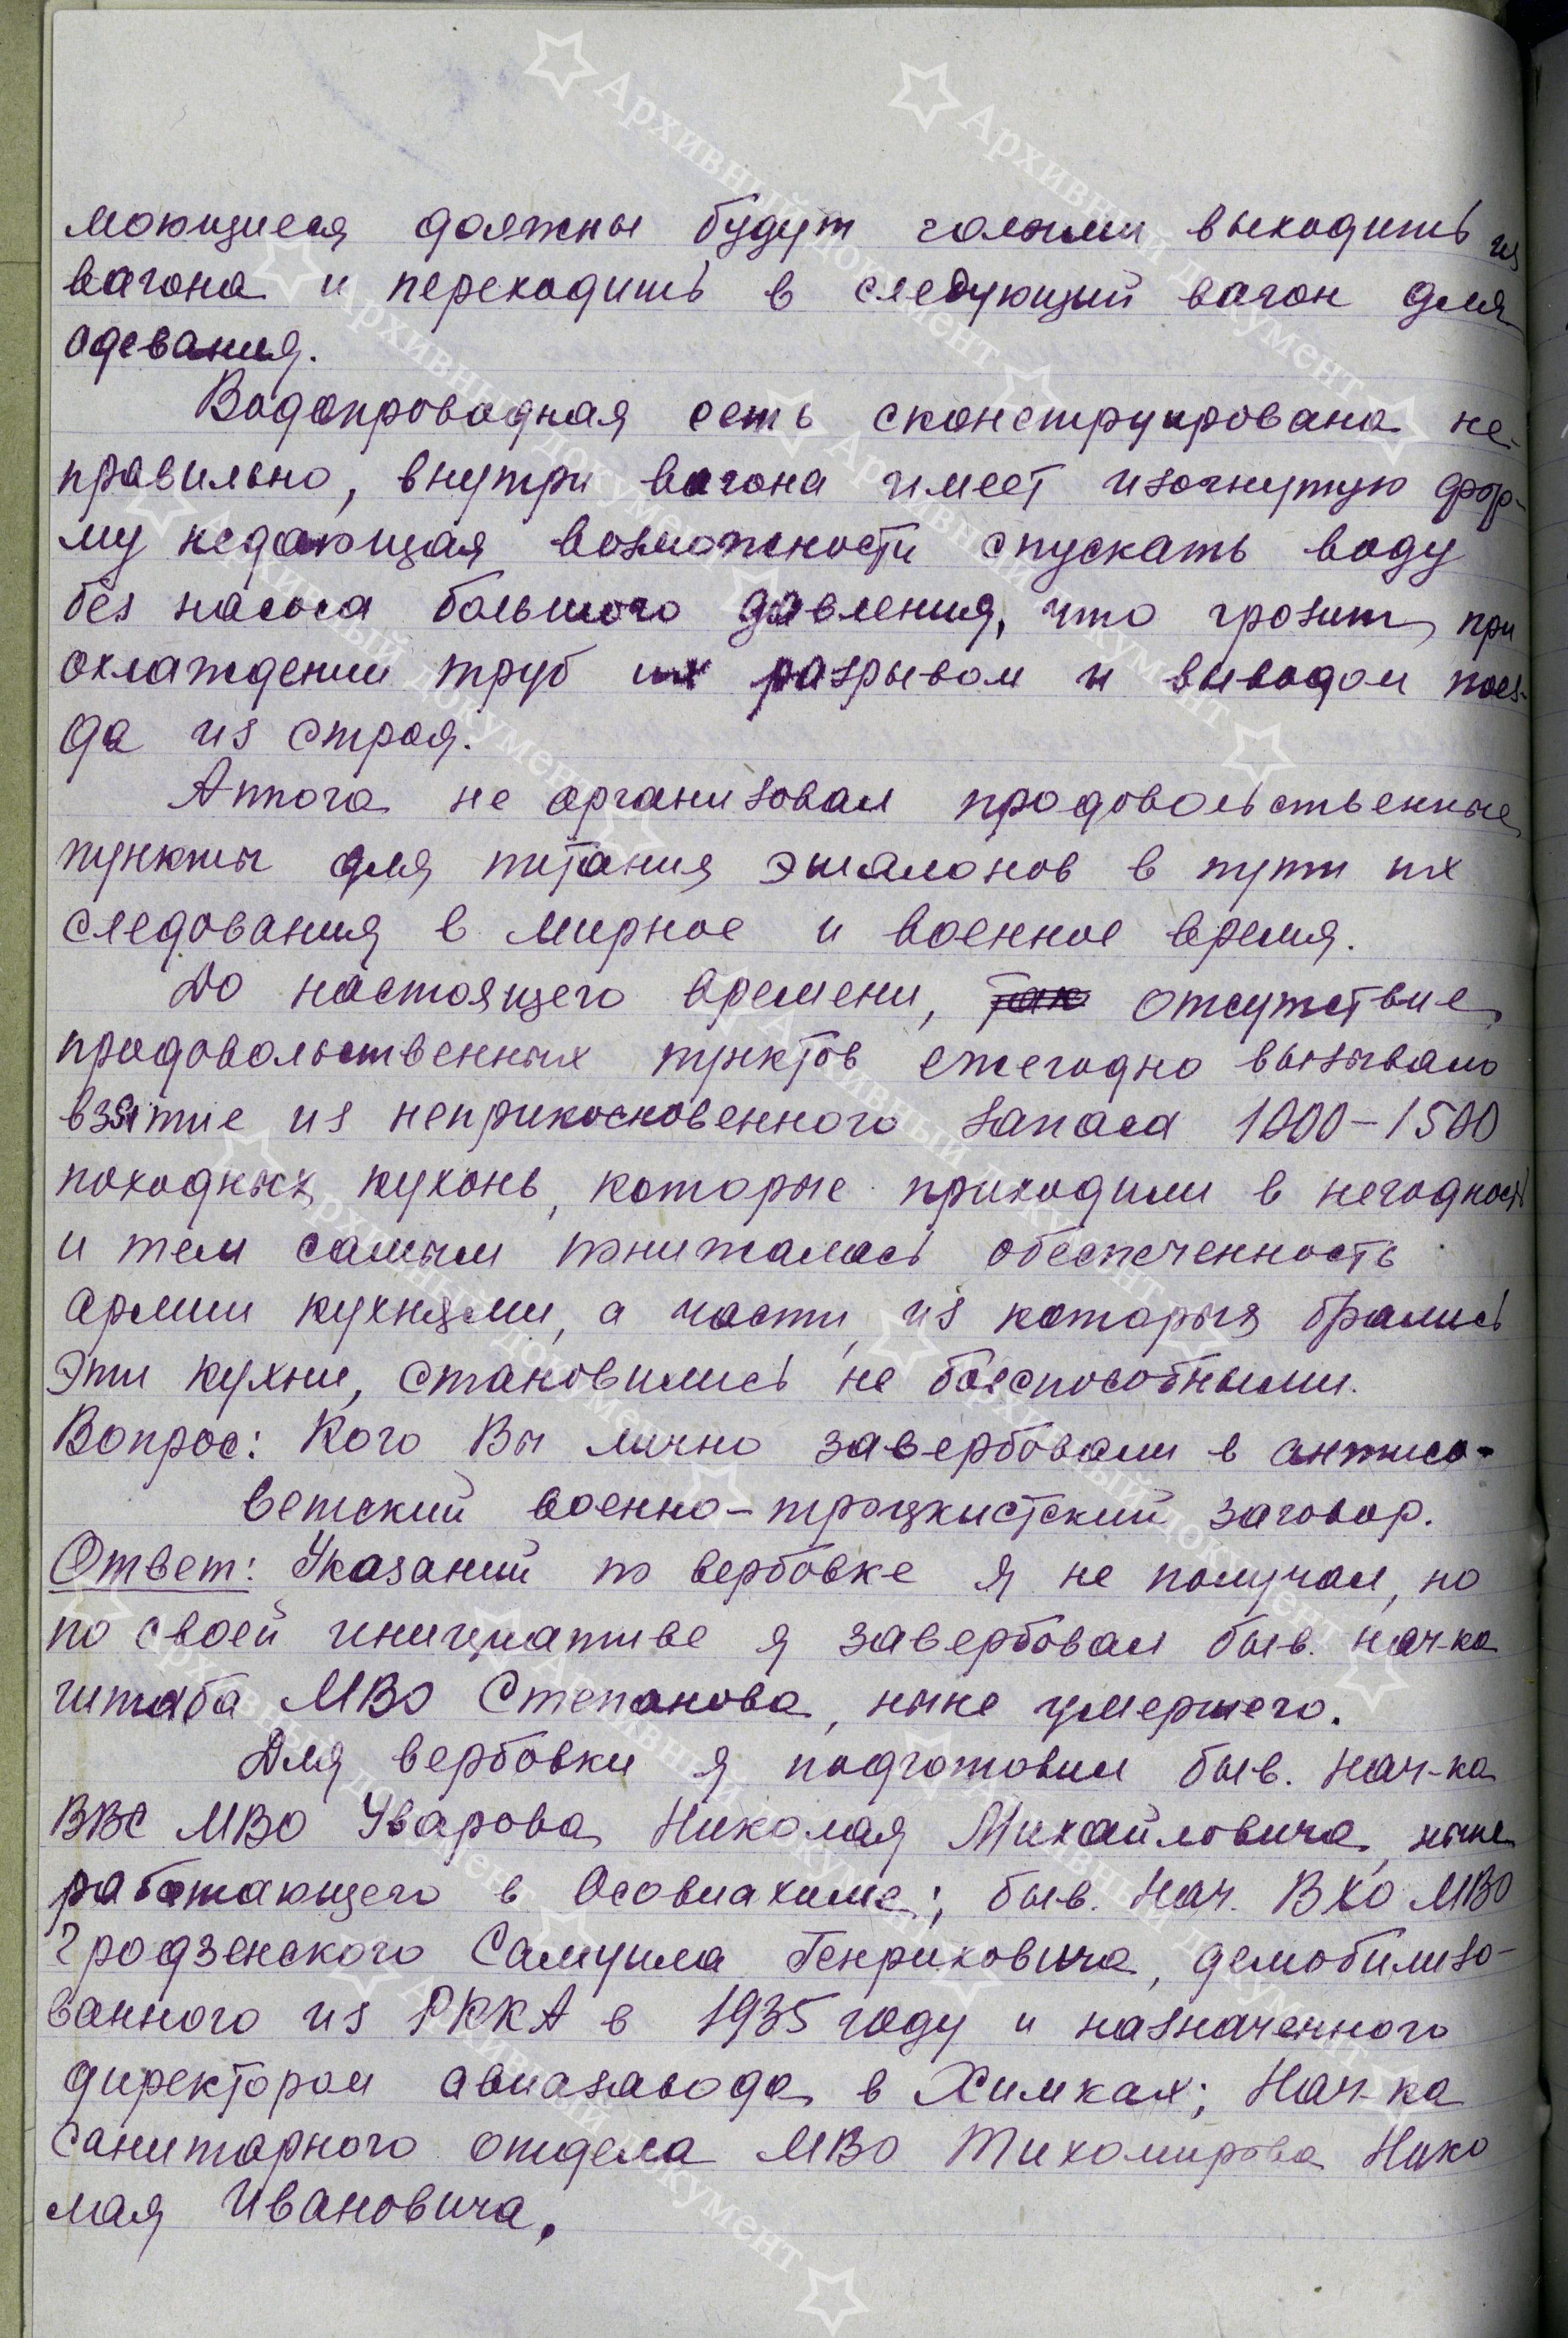 моющиеся должны будут голыми выходить из
вагона и переходить в следующий вагон для
одевания.
Водопроводная сеть сконструирована не-
правильно, внутри вагона имеет изогнутую фор-
му недающая возможности спускать воду
без насоса большого давления, что грозит при
охлаждении труб их разрывом и выводом поез-
да из строя.
Аппога не организовал продовольственные
пункты для питания эшалонов в пути их
следования в мирное и военное время.
До настоящего времени, так отсутствие
продовольственных пунктов ежегодно вызывало
взятие из неприкосновенного запаса 1000-1500
походных кухонь, которые приходили в негодность
и тем самым понижалась обеспеченность
армии кухнями, а части, из которых брались
эти кухни, становились не боеспособными.
Вопрос: Кого Вы лично завербовали в антисо-
ветский военно-троцкистский заговор.
Ответ: Указаний по вербовке я не получал, но
по своей инициативе я завербовал быв. нач-ка
штаба МВО Степанова, ныне умершего.
Для вербовки я подготовил быв. нач-ка
ВВС МВО Уварова Николая Михайловича, ныне
работающего в Осовиахиме; быв. Нач. ВХО МВО
Гродзенского Самуила Генриховича, демобилизо-
ванного из РККА в 1935 году и назначенного
директором авиазавода в Химках; Нач-ка
Санитарного отдела МВО Тихомирова Нико
лая Ивановича.
Архивный документ